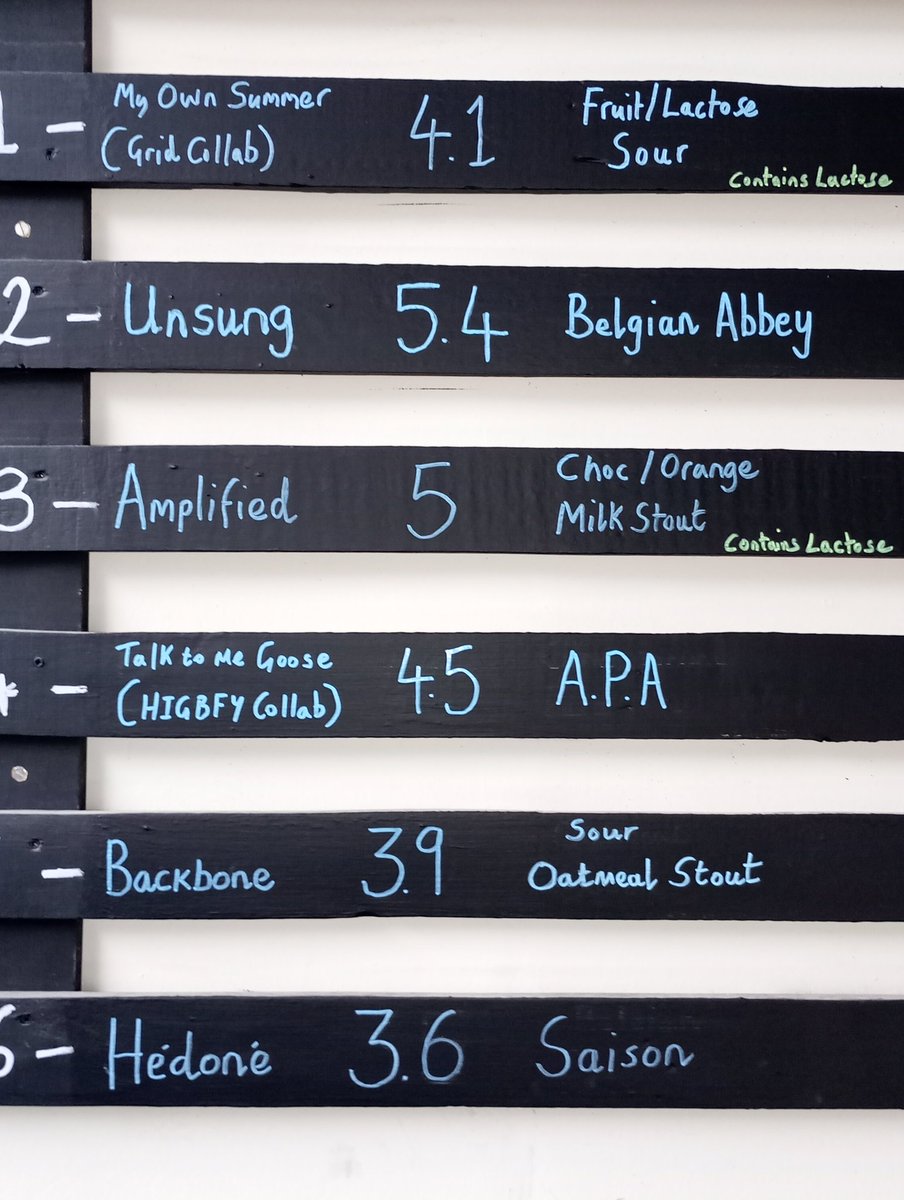 1 - My Own Summer
(Grid Collab)
4.1
Fruit/Lactose
Sour
Contains Lactose
2 - Unsung 5.4 Belgian Abbey
3 - Amplified 5
Choc/Orange
Milk Stout
Contains Lactose
- Talk to Me Goose
(HIGBFY Collab)
4.5 A.P.A
- Backbone 3.9
Sour
Oatmeal Stout
6 - Hédoné 3.6 Saison